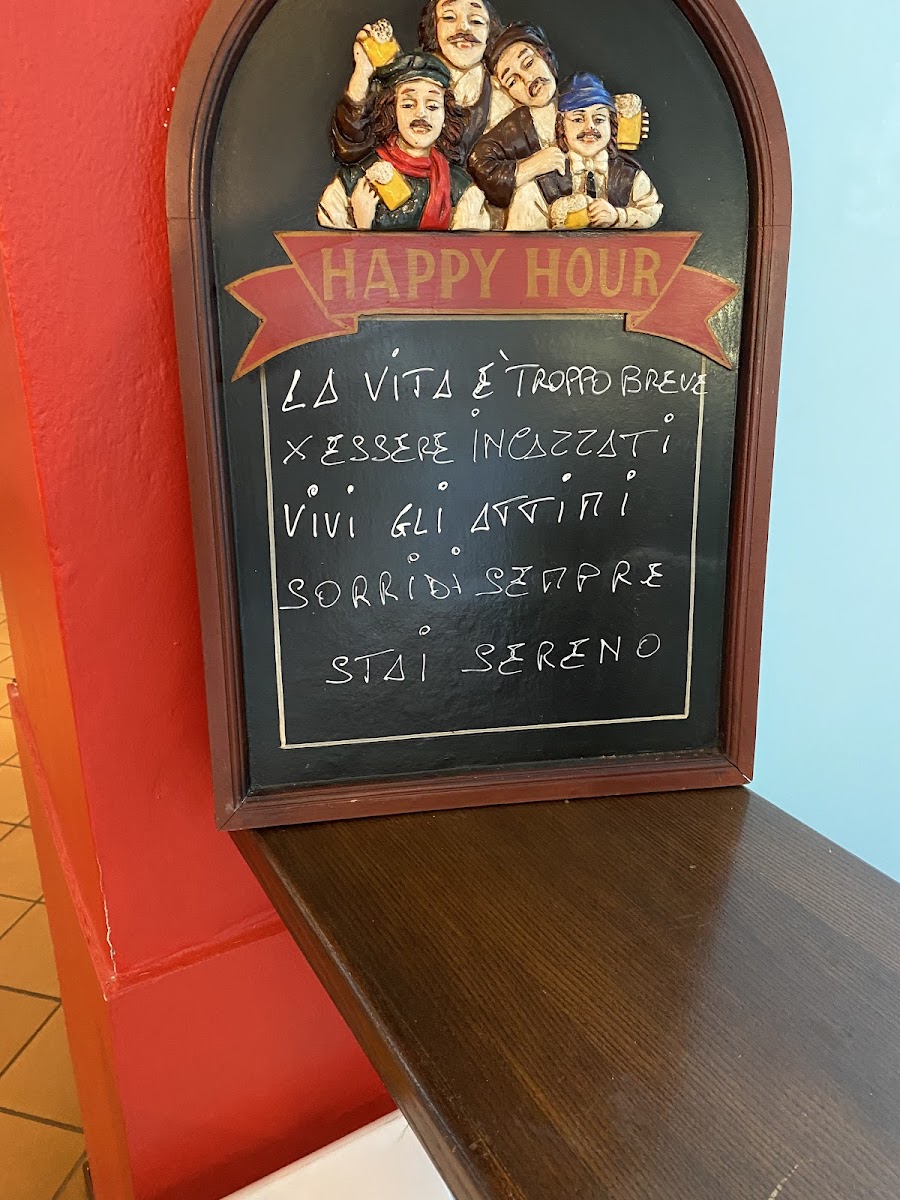 HAPPY HOUR
LA VITA È TROPPO BREVE
X ESSERE INCAZZATI
VIVI GLI ATTIMI
SORRIDI SEMPRE
STAI SERENO